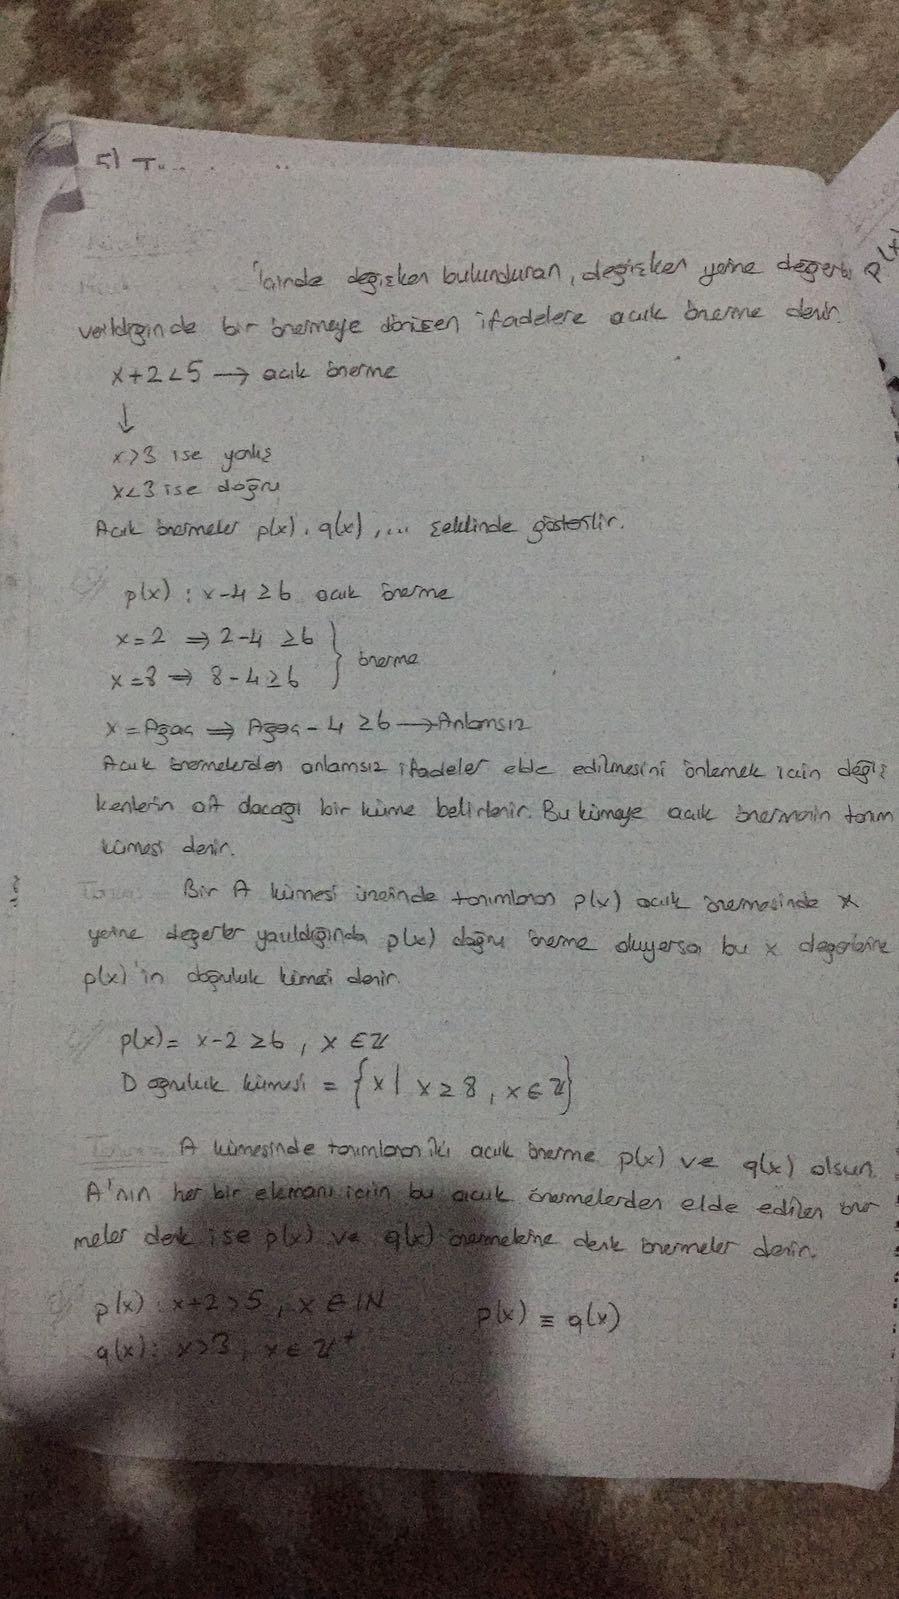 5)
İçinde değişken bulunduran, değişken yerine değerler
p(x)
verildiğinde bir önermeye dönüşen ifadelere açık önerme denir.
x+2<5 → açık önerme
↓
x>3 ise yanlış
x<3 ise doğru
Açık önermeler p(x), q(x), ... şeklinde gösterilir.
p(x) : x-4 ≥6 açık önerme
x=2 ⇒ 2-4 ≥6
x=8 ⇒ 8-4≥6 } önerme
x=Ağaç ⇒ Ağaç-4 ≥6 → Anlamsız
Açık önermelerden anlamsız ifadeler elde edilmesini önlemek için değiş
kenlerin ait olacağı bir küme belirlenir. Bu kümeye açık önermenin tanım
kümesi denir.
Tanım: Bir A kümesi üzerinde tanımlanan p(x) açık önermesinde x
yerine değerler yazıldığında p(x) doğru önerme oluyorsa bu x değerlerine
p(x)'in doğruluk kümesi denir.
p(x)= x-2 ≥6, x ∈ Z
Doğruluk kümesi = {x | x ≥ 8, x ∈ Z}
Tanım: A kümesinde tanımlanan iki açık önerme p(x) ve q(x) olsun.
A'nın her bir elemanı için bu açık önermelerden elde edilen öner
meler denk ise p(x) ve q(x) önermelerine denk önermeler denir.
p(x) : x+2>5, x ∈ IN p(x) ≡ q(x)
q(x) : x>3, x ∈ Z⁺